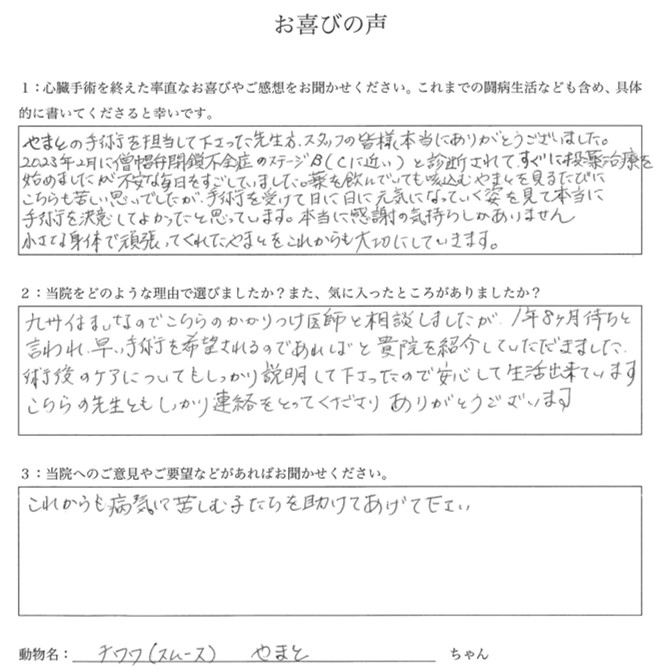 お喜びの声
1：心臓手術を終えた率直なお喜びやご感想をお聞かせください。これまでの闘病生活なども含め、具体
的に書いてくださると幸いです。
やまとの手術を担当して下さった先生方、スタッフの皆様、本当にありがとうございました。
2023年2月に僧帽弁閉鎖不全症のステージB(Cに近い)と診断されて、すぐに投薬治療を
始めましたが不安な毎日をすごしていました。薬を飲んでいても咳込むやまとを見るたびに
こちらも苦しい思いでしたが、手術を受けて日に日に元気になっていく姿を見て本当に
手術を決意してよかったと思っています。本当に感謝の気持ちしかありません
小さな身体で頑張ってくれたやまとをこれからも大切にしていきます。
2：当院をどのような理由で選びましたか？また、気に入ったところがありましたか？
九州住まいなのでこちらのかかりつけ医師と相談しましたが、1年8ヶ月待ちと
言われ、早い手術を希望されるのであればと貴院を紹介していただきました。
術後のケアについてもしっかり説明して下さったので安心して生活出来ています
こちらの先生ともしっかり連絡をとってくださり ありがとうございます
3：当院へのご意見やご要望などがあればお聞かせください。
これからも病気で苦しむ子たちを助けてあげて下さい
動物名： チワワ(スムース) やまと ちゃん